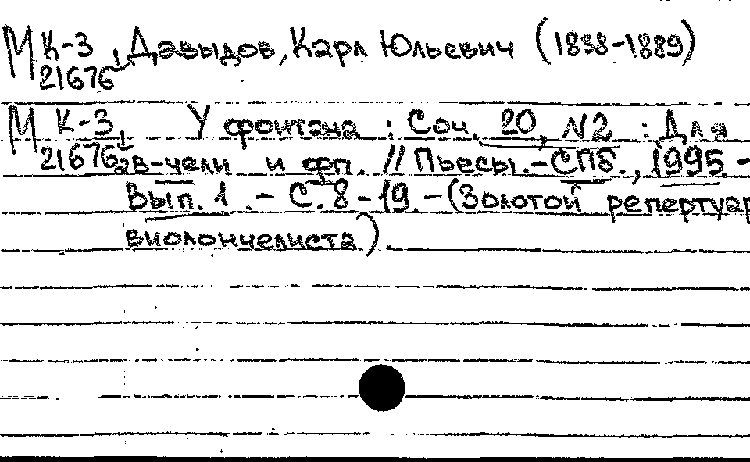 М К-3 Давыдов, Карл Юльевич (1838-1889)
21676
М К-3 У фонтана : Соч. 20, N2 : Для
21676 в-чели и фп. // Пьесы. - СПб., 1995 -
Вып. 1. - С. 8-19. - (Золотой репертуар
виолончелиста).